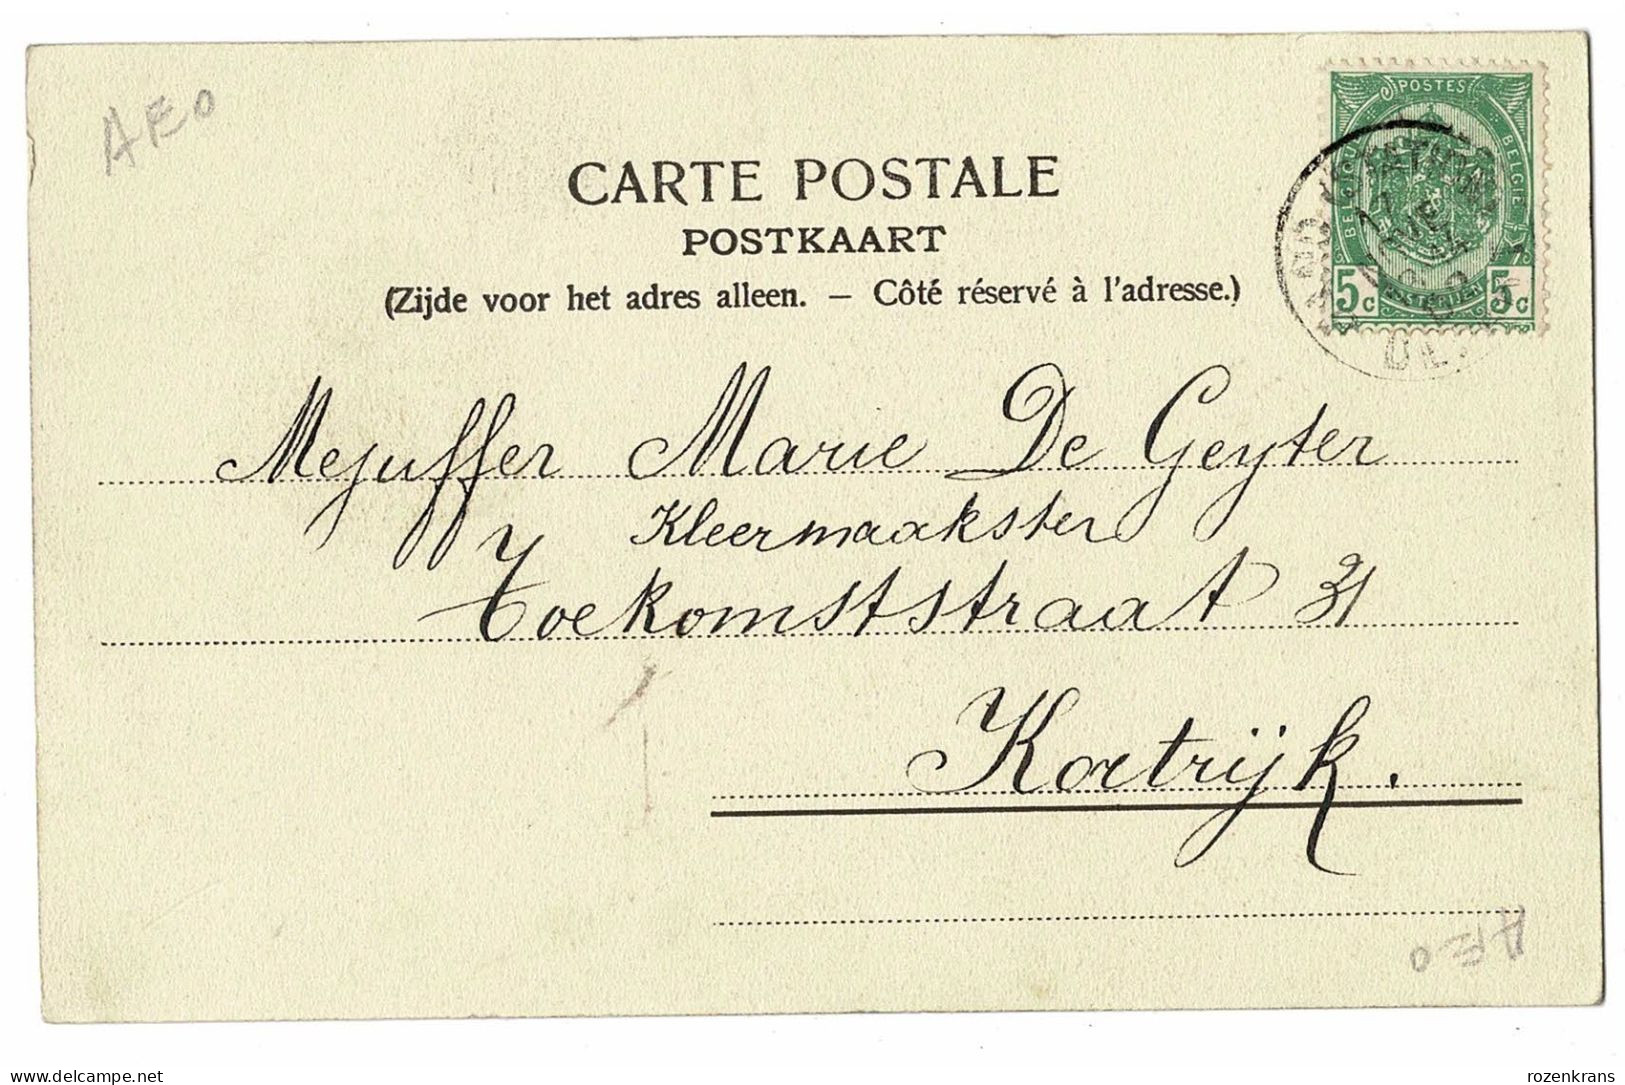 AEO
CARTE POSTALE
POSTKAART
(Zijde voor het adres alleen. — Côté réservé à l'adresse.)
POSTES
BELGIQUE BELGIE
5c 5c
Mejuffer Marie De Geyter
Kleermaakster
Toekomststraat 31
Kortrijk.
AEO
rozenkrans